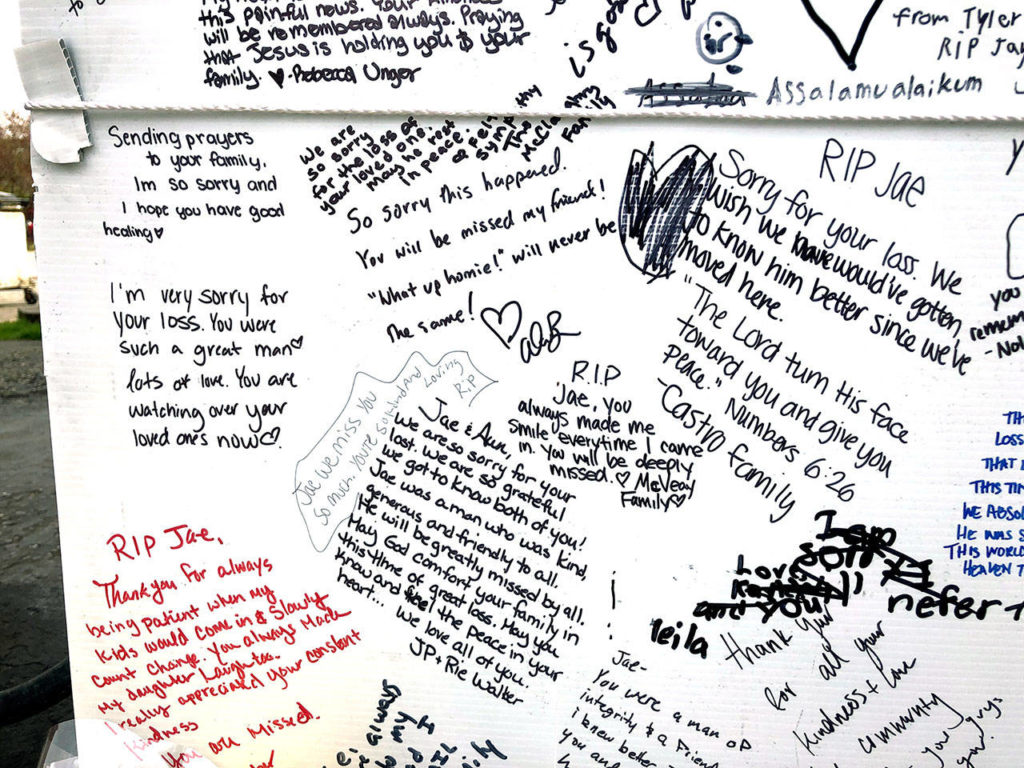 this painful news. Your kindness
will be remembered always. Praying
that Jesus is holding you & your
family. ♥ -Rebecca Unger
is
from Tyler
RIP Jay
Assalamualaikum
Sending prayers
to your family.
Im so sorry and
I hope you have good
healing ♥
We are
so sorry
for the loss of
your loved one.
May he rest
in peace.
The McCla
Family
So sorry this happened.
You will be missed my friend!
"What up homie!" will never be
the same!
RIP Jae
Sorry for your loss. We
wish we would've gotten
to know him better since we've
moved here.
"The Lord turn His face
toward you and give you
peace." Numbers 6:26
-Castro family
you
remem
-Nol
I'm very sorry for
your loss. You were
such a great man ♡
lots of love. You are
watching over your
loved one's now ♡.
Jae we miss you
so much. You're so kind and
Loving
R.i.P
Jae & Aun,
We are so sorry for your
lost. We are so grateful
we got to know both of you!
Jae was a man who was kind,
generous and friendly to all.
He will be greatly missed by all.
May God comfort your family in
this time of great loss. May you
know and feel the peace in your
heart... We love all of you.
JP + Rie Walter
R.I.P
Jae, you
always made me
smile everytime I came
in. You will be deeply
missed. ♡ McVeay
Family ♡
TH
LOSS
THAT
THIS TIM
WE ABSOL
HE WAS S
THIS WORLD
HEAVEN T
RIP Jae,
Thank you for always
being patient when my
kids would come in & slowly
count change. You always made
my daughter laugh too.
I really appreciated your constant
kindness
You are missed.
I am
sorry
Love
and you
nefer
leila
Thank you
for all your
kindness + love
community
you guys
Jae-
You were a man of
integrity & a friend
i knew better
you and
always
to my